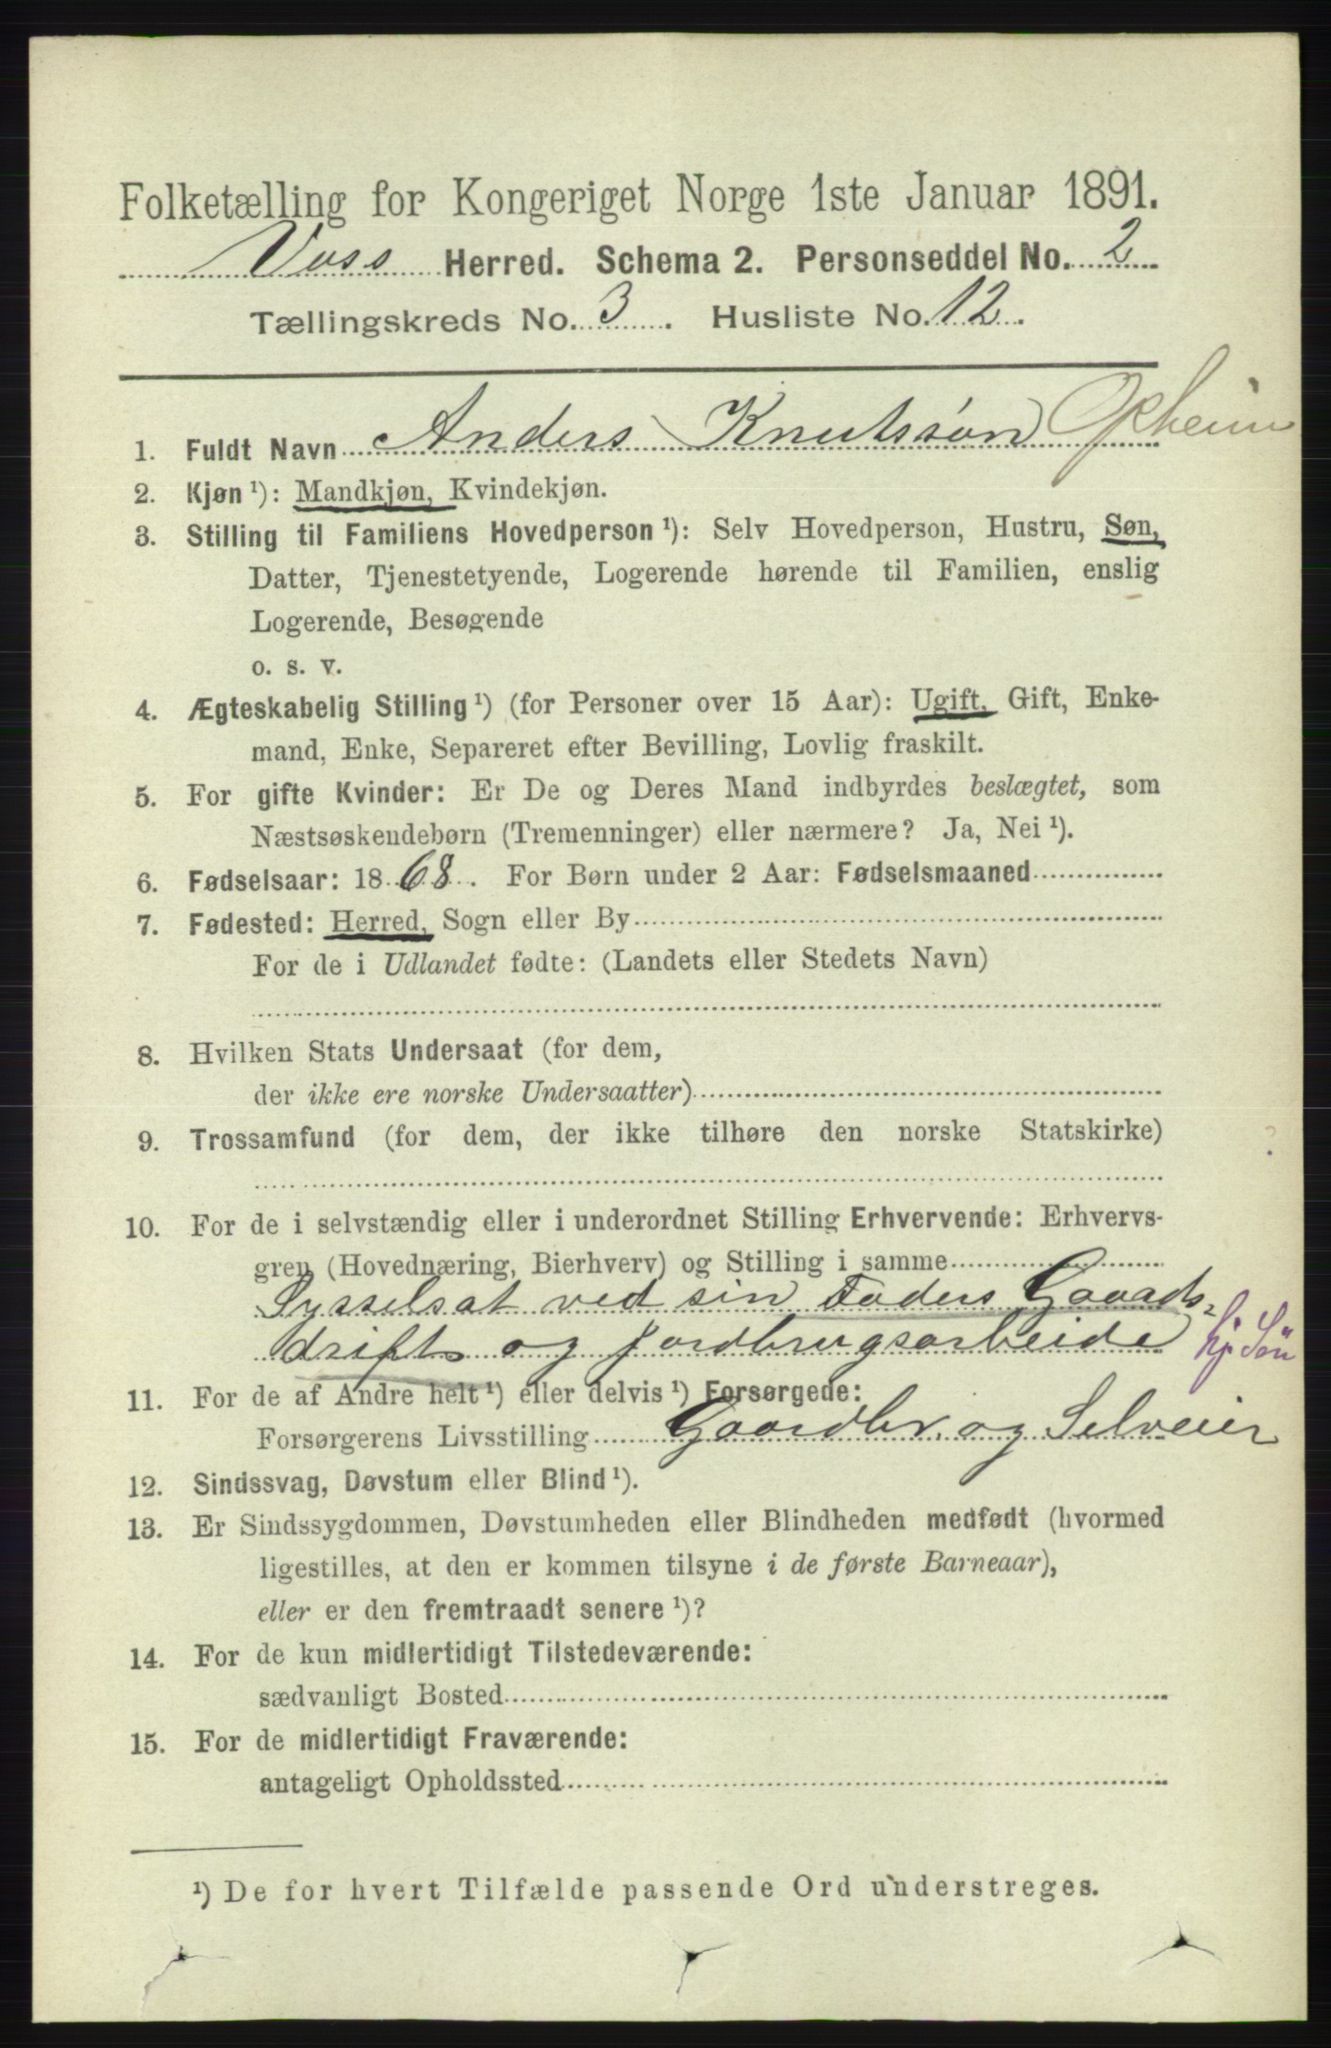 Folketælling for Kongeriget Norge 1ste Januar 1891.
Voss Herred. Schema 2. Personseddel No. 2
Tællingskreds No. 3. Husliste No. 12.
1. Fuldt Navn Anders Knutssøn Opheim
2. Kjøn ¹): Mandkjøn, Kvindekjøn.
3. Stilling til Familiens Hovedperson ¹): Selv Hovedperson, Hustru, Søn,
Datter, Tjenestetyende, Logerende hørende til Familien, enslig
Logerende, Besøgende
o. s. v.
4. Ægteskabelig Stilling ¹) (for Personer over 15 Aar): Ugift, Gift, Enke-
mand, Enke, Separeret efter Bevilling, Lovlig fraskilt.
5. For gifte Kvinder: Er De og Deres Mand indbyrdes beslægtet, som
Næstsøskendebørn (Tremenninger) eller nærmere? Ja, Nei ¹).
6. Fødselsaar: 1868. For Børn under 2 Aar: Fødselsmaaned
7. Fødested: Herred, Sogn eller By
For de i Udlandet fødte: (Landets eller Stedets Navn)
8. Hvilken Stats Undersaat (for dem,
der ikke ere norske Undersaatter)
9. Trossamfund (for dem, der ikke tilhøre den norske Statskirke)
?
10. For de i selvstændig eller i underordnet Stilling Erhvervende: Erhvervs-
gren (Hovednæring, Bierhverv) og Stilling i samme
Sysselsat ved sin Faders Gaards-
drift og Jordbrugsarbeide
hj. Søn
11. For de af Andre helt ¹) eller delvis ¹) Forsørgede:
Forsørgerens Livsstilling Gaardbr. og Selveier
12. Sindssvag, Døvstum eller Blind ¹).
13. Er Sindssygdommen, Døvstumheden eller Blindheden medfødt (hvormed
ligestilles, at den er kommen tilsyne i de første Barneaar),
eller er den fremtraadt senere ¹)?
14. For de kun midlertidigt Tilstedeværende:
sædvanligt Bosted
15. For de midlertidigt Fraværende:
antageligt Opholdssted
¹) De for hvert Tilfælde passende Ord understreges.